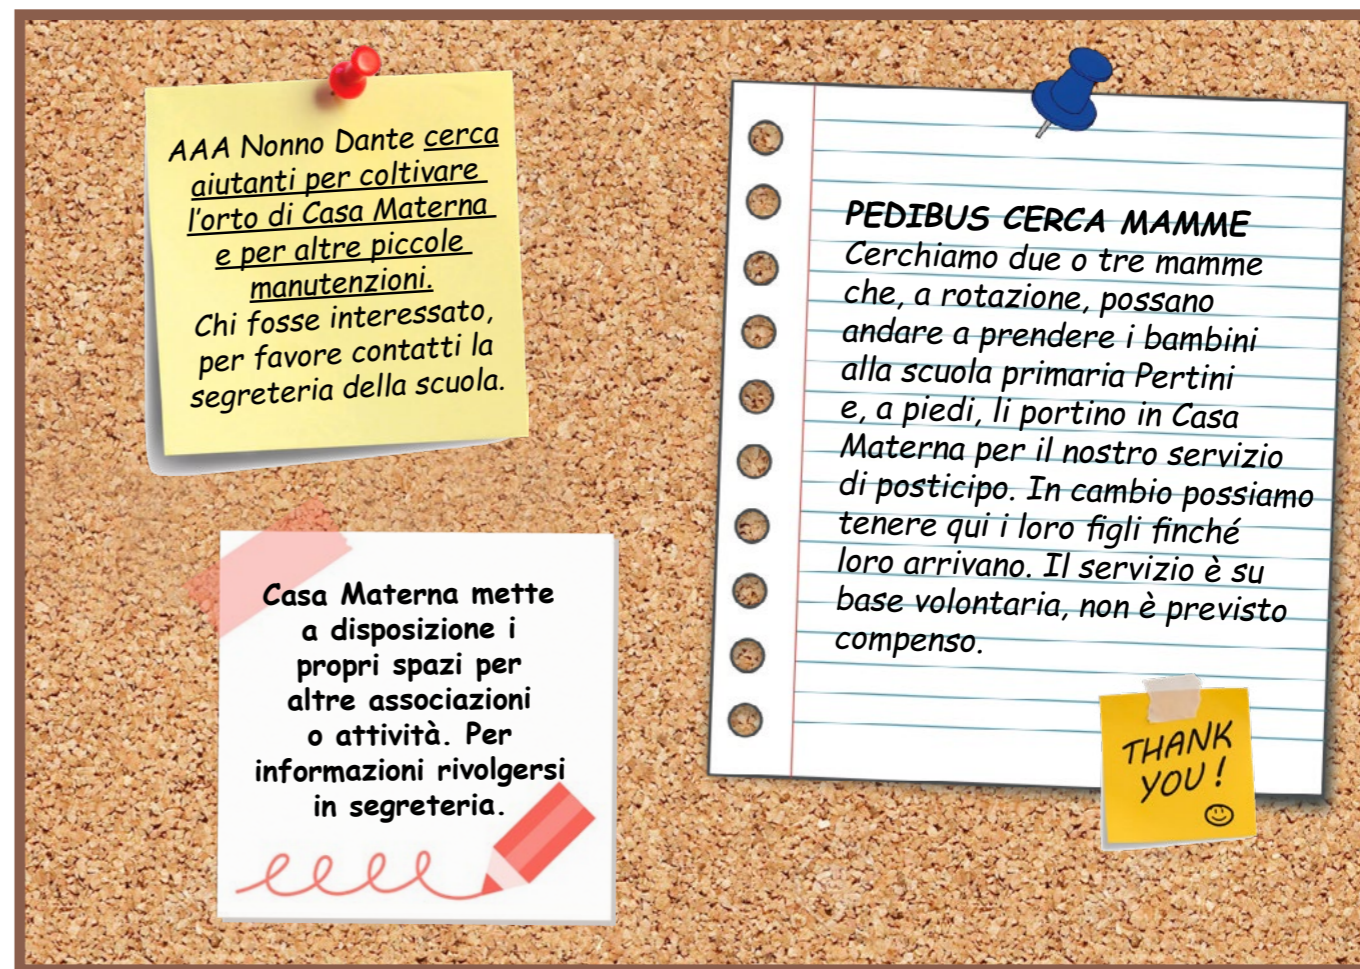 AAA Nonno Dante cerca
aiutanti per coltivare
l'orto di Casa Materna
e per altre piccole
manutenzioni.
Chi fosse interessato,
per favore contatti la
segreteria della scuola.
Casa Materna mette
a disposizione i
propri spazi per
altre associazioni
o attività. Per
informazioni rivolgersi
in segreteria.
PEDIBUS CERCA MAMME
Cerchiamo due o tre mamme
che, a rotazione, possano
andare a prendere i bambini
alla scuola primaria Pertini
e, a piedi, li portino in Casa
Materna per il nostro servizio
di posticipo. In cambio possiamo
tenere qui i loro figli finché
loro arrivano. Il servizio è su
base volontaria, non è previsto
compenso.
THANK
YOU!